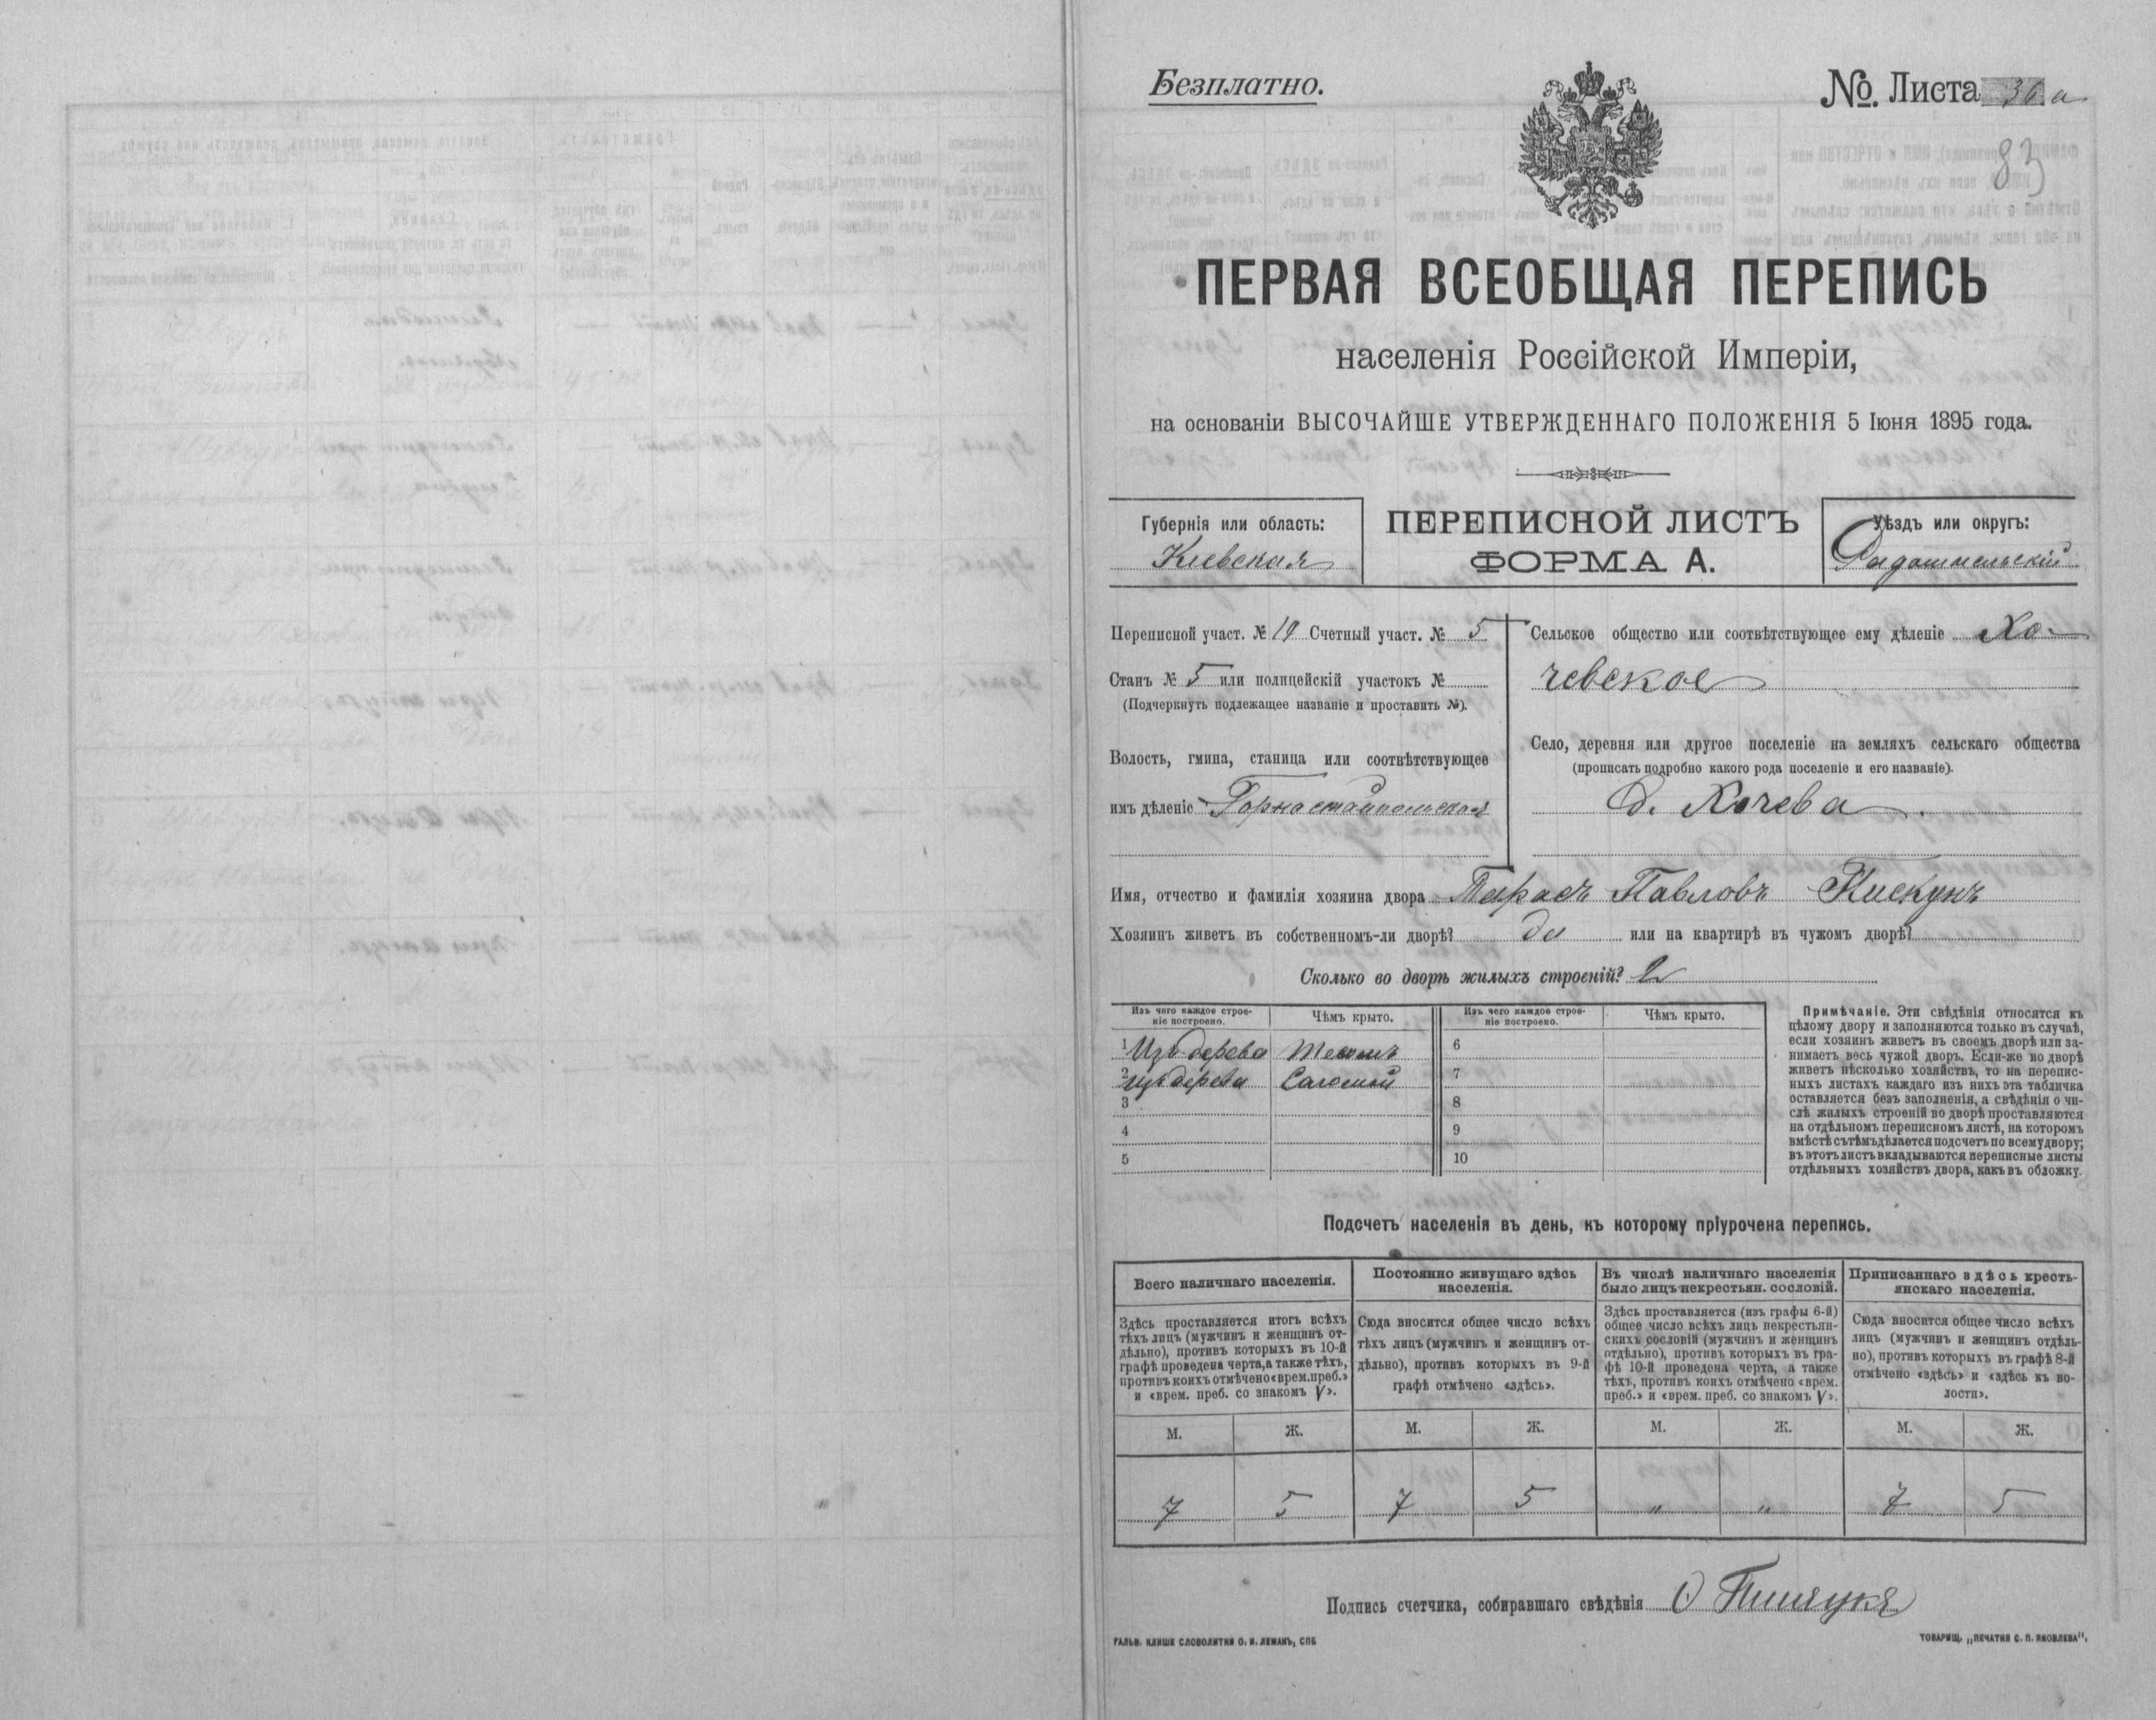 Безплатно.
№. Листа 31 а
83
ПЕРВАЯ ВСЕОБЩАЯ ПЕРЕПИСЬ
населенія Россійской Имперіи,
на основаніи ВЫСОЧАЙШЕ УТВЕРЖДЕННАГО ПОЛОЖЕНІЯ 5 Іюня 1895 года.
Губернія или область:
Кіевская
ПЕРЕПИСНОЙ ЛИСТЪ
ФОРМА А.
Уѣздъ или округъ:
Радомысльскій
Переписной участ. № 19 Счетный участ. № 5
Станъ № 5 или полицейскій участокъ №
(Подчеркнуть подлежащее названіе и проставить №).
Волость, гмина, станица или соотвѣтствующее
имъ дѣленіе Горностайпольская
Сельское общество или соотвѣтствующее ему дѣленіе Хо-
чевское
Село, деревня или другое поселеніе на земляхъ сельскаго общества
(прописать подробно какого рода поселеніе и его названіе).
д. Хочева
Имя, отчество и фамилія хозяина двора Тарасъ Павловъ Пискунъ
Хозяинъ живетъ въ собственномъ-ли дворѣ? да или на квартирѣ въ чужомъ дворѣ?
Сколько во дворѣ жилыхъ строеній? 2
Изъ чего каждое строе-
ніе построено.
Чѣмъ крыто.
Изъ чего каждое строе-
ніе построено.
Чѣмъ крыто.
1 Изъ дерева Тесомъ 6
2 изъ дерева Соломой 7
3 8
4 9
5 10
Примѣчаніе. Эти свѣдѣнія относятся къ
цѣлому двору и заполняются только въ случаѣ,
если хозяинъ живетъ въ своемъ дворѣ или за-
нимаетъ весь чужой дворъ. Если-же во дворѣ
живетъ нѣсколько хозяйствъ, то на перепис-
ныхъ листахъ каждаго изъ нихъ эта табличка
оставляется безъ заполненія, а свѣдѣнія о чи-
слѣ жилыхъ строеній во дворѣ проставляются
на отдѣльномъ переписномъ листѣ, на которомъ
вмѣстѣ съ тѣмъ дѣлается подсчетъ по всему двору;
въ этотъ листъ вкладываются переписные листы
отдѣльныхъ хозяйствъ двора, какъ въ обложку.
Подсчетъ населенія въ день, къ которому пріурочена перепись.
Всего наличнаго населенія.
Здѣсь проставляется итогъ всѣхъ
тѣхъ лицъ (мужчинъ и женщинъ от-
дѣльно), противъ которыхъ въ 10-й
графѣ проведена черта, а также тѣхъ,
противъ коихъ отмѣчено «врем. преб.»
и «врем. преб. со знакомъ V».
Постоянно живущаго здѣсь
населенія.
Сюда вносится общее число всѣхъ
тѣхъ лицъ (мужчинъ и женщинъ от-
дѣльно), противъ которыхъ въ 9-й
графѣ отмѣчено «здѣсь».
Въ числѣ наличнаго населенія
было лицъ некрестьян. сословій.
Здѣсь проставляется (изъ графы 6-й)
общее число всѣхъ лицъ некрестьян-
скихъ сословій (мужчинъ и женщинъ
отдѣльно), противъ которыхъ въ гра-
фѣ 10-й проведена черта, а также
тѣхъ, противъ коихъ отмѣчено «врем.
преб.» и «врем. преб. со знакомъ V».
Приписаннаго здѣсь кресть-
янскаго населенія.
Сюда вносится общее число всѣхъ
лицъ (мужчинъ и женщинъ отдѣль-
но), противъ которыхъ въ графѣ 8-й
отмѣчено «здѣсь» и «здѣсь къ во-
лости».
М. Ж. М. Ж. М. Ж. М. Ж.
7 5 7 5 " " 7 5
Подпись счетчика, собиравшаго свѣдѣнія
ГАЛЬВ. КЛИШЕ СЛОВОЛИТНИ О. И. ЛЕМАНЪ, СПБ
ТОВАРИЩ. „ПЕЧАТНЯ С. П. ЯКОВЛЕВА".